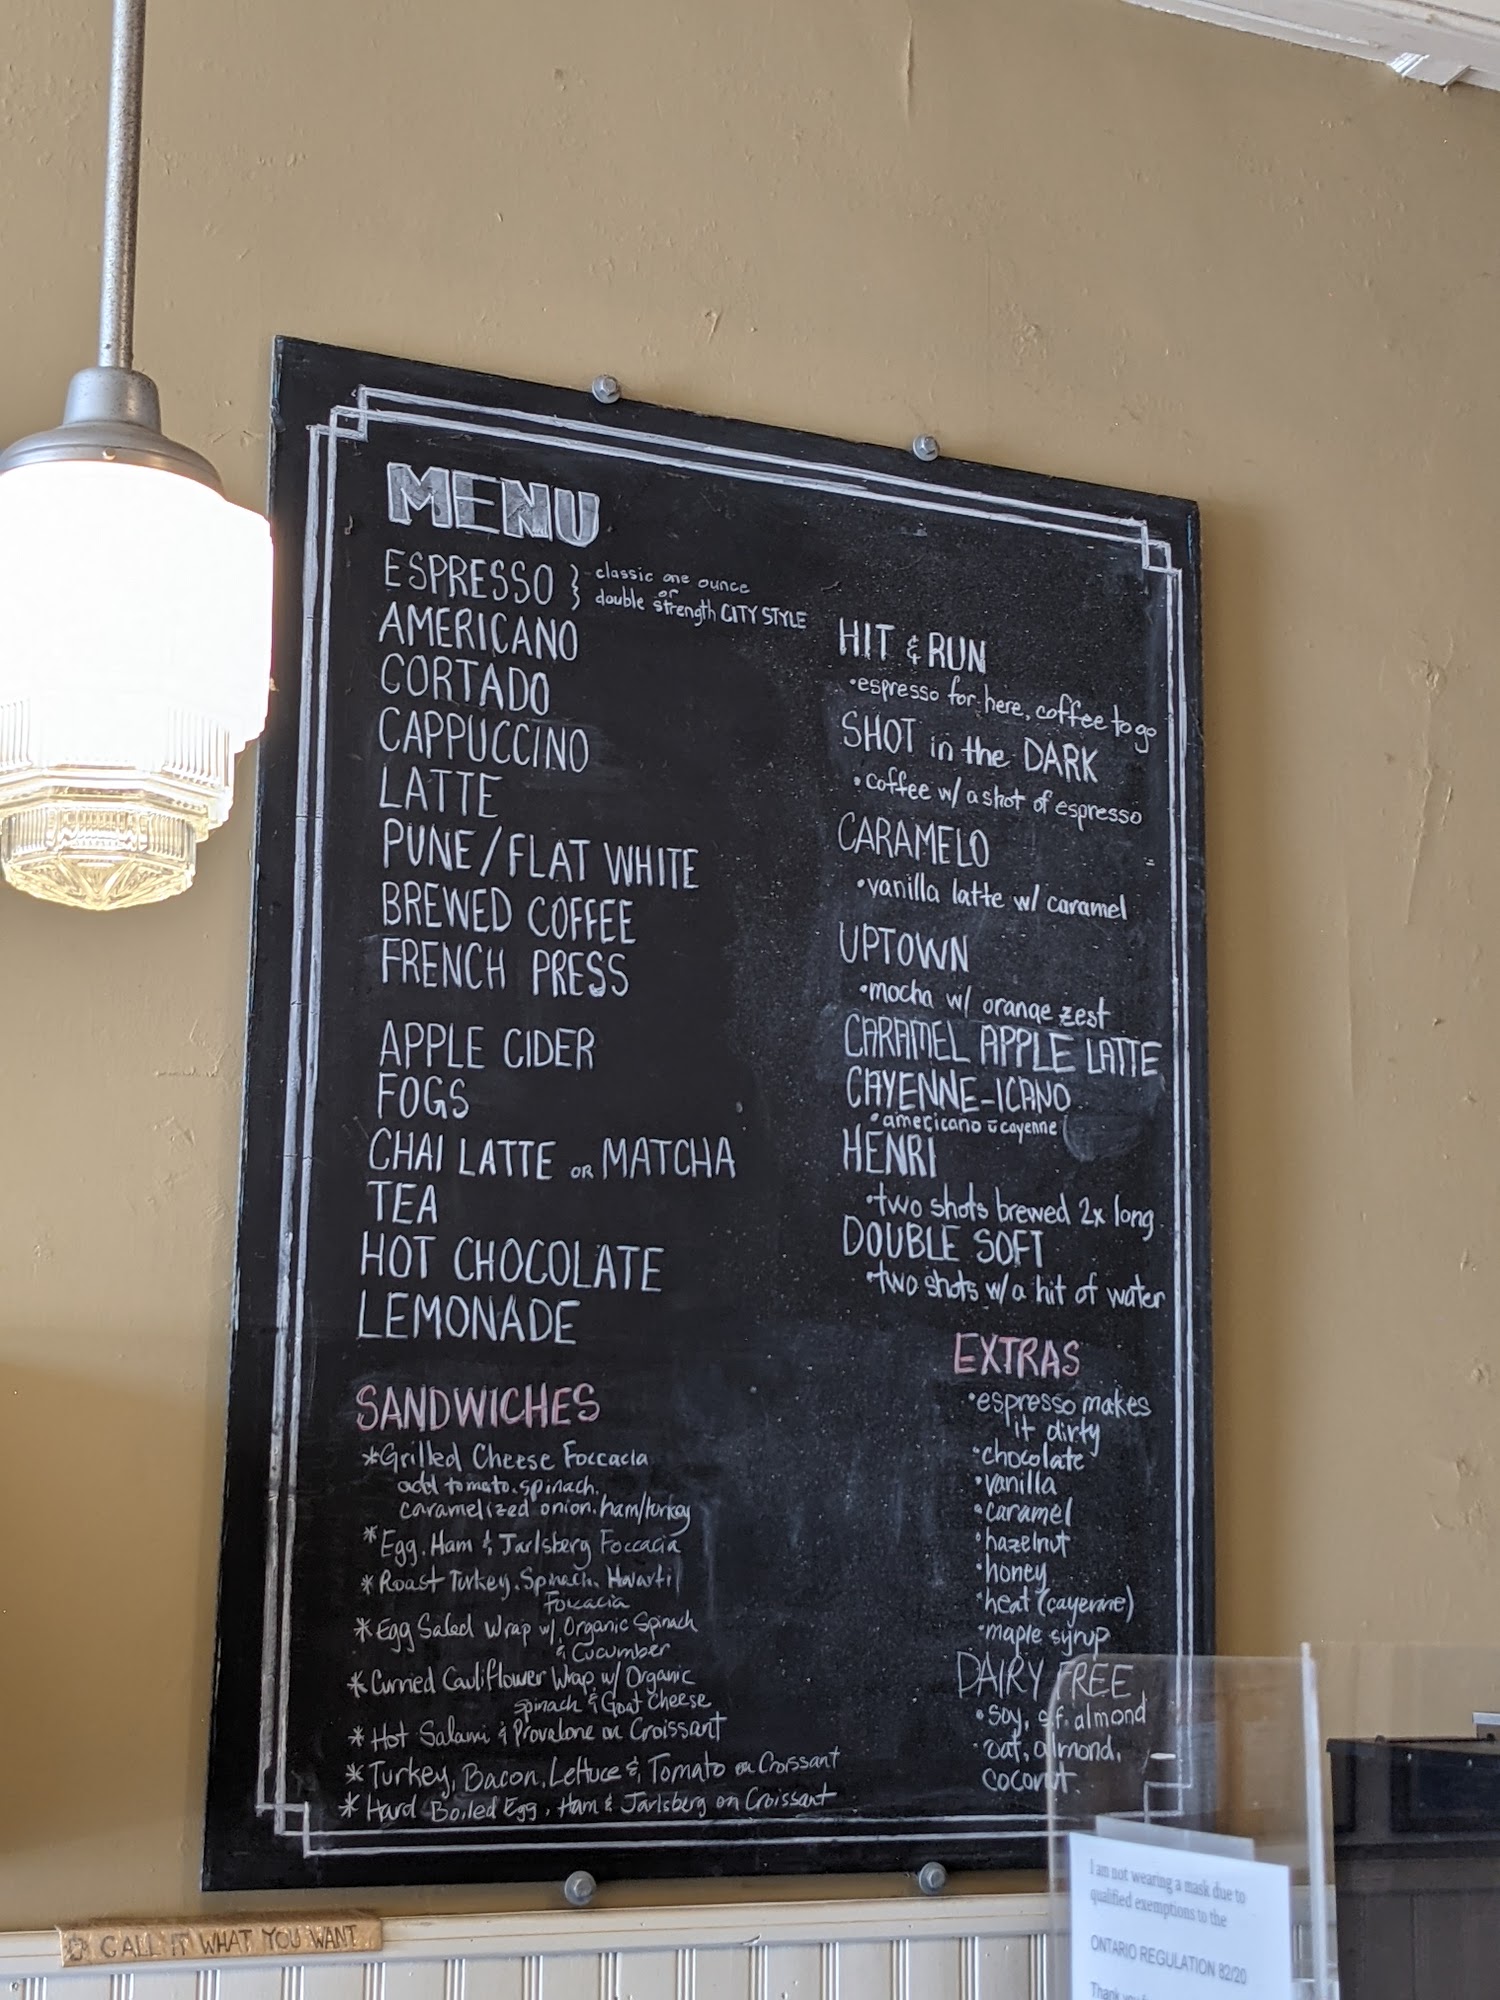 MENU
ESPRESSO } classic one ounce
or
double strength CITY STYLE
AMERICANO
CORTADO
CAPPUCCINO
LATTE
PUNE/FLAT WHITE
BREWED COFFEE
FRENCH PRESS
APPLE CIDER
FOGS
CHAI LATTE OR MATCHA
TEA
HOT CHOCOLATE
LEMONADE
SANDWICHES
*Grilled Cheese Foccacia
add tomato. spinach.
caramelized onion. ham/turkey
*Egg. Ham & Jarlsberg Foccacia
*Roast Turkey. Spinach. Havarti
Foccacia
*Egg Salad Wrap w/ Organic Spinach
& Cucumber
*Curried Cauliflower Wrap w/ Organic
spinach & Goat Cheese
*Hot Salami & Provolone on Croissant
*Turkey, Bacon, Lettuce & Tomato on Croissant
*Hard Boiled Egg, Ham & Jarlsberg on Croissant
HIT & RUN
•espresso for here, coffee to go
SHOT in the DARK
•coffee w/ a shot of espresso
CARAMELO
•vanilla latte w/ caramel
UPTOWN
•mocha w/ orange zest
CARAMEL APPLE LATTE
CAYENNE-ICANO
•americano c̄ cayenne
HENRI
•two shots brewed 2x long
DOUBLE SOFT
•two shots w/ a hit of water
EXTRAS
•espresso makes
it dirty
•chocolate
•vanilla
•caramel
•hazelnut
•honey
•heat (cayenne)
•maple syrup
DAIRY FREE
•soy, s.f. almond
•oat, almond,
coconut.
CALL IT WHAT YOU WANT
I am not wearing a mask due to
qualified exemptions to the
ONTARIO REGULATION 82/20
Thank